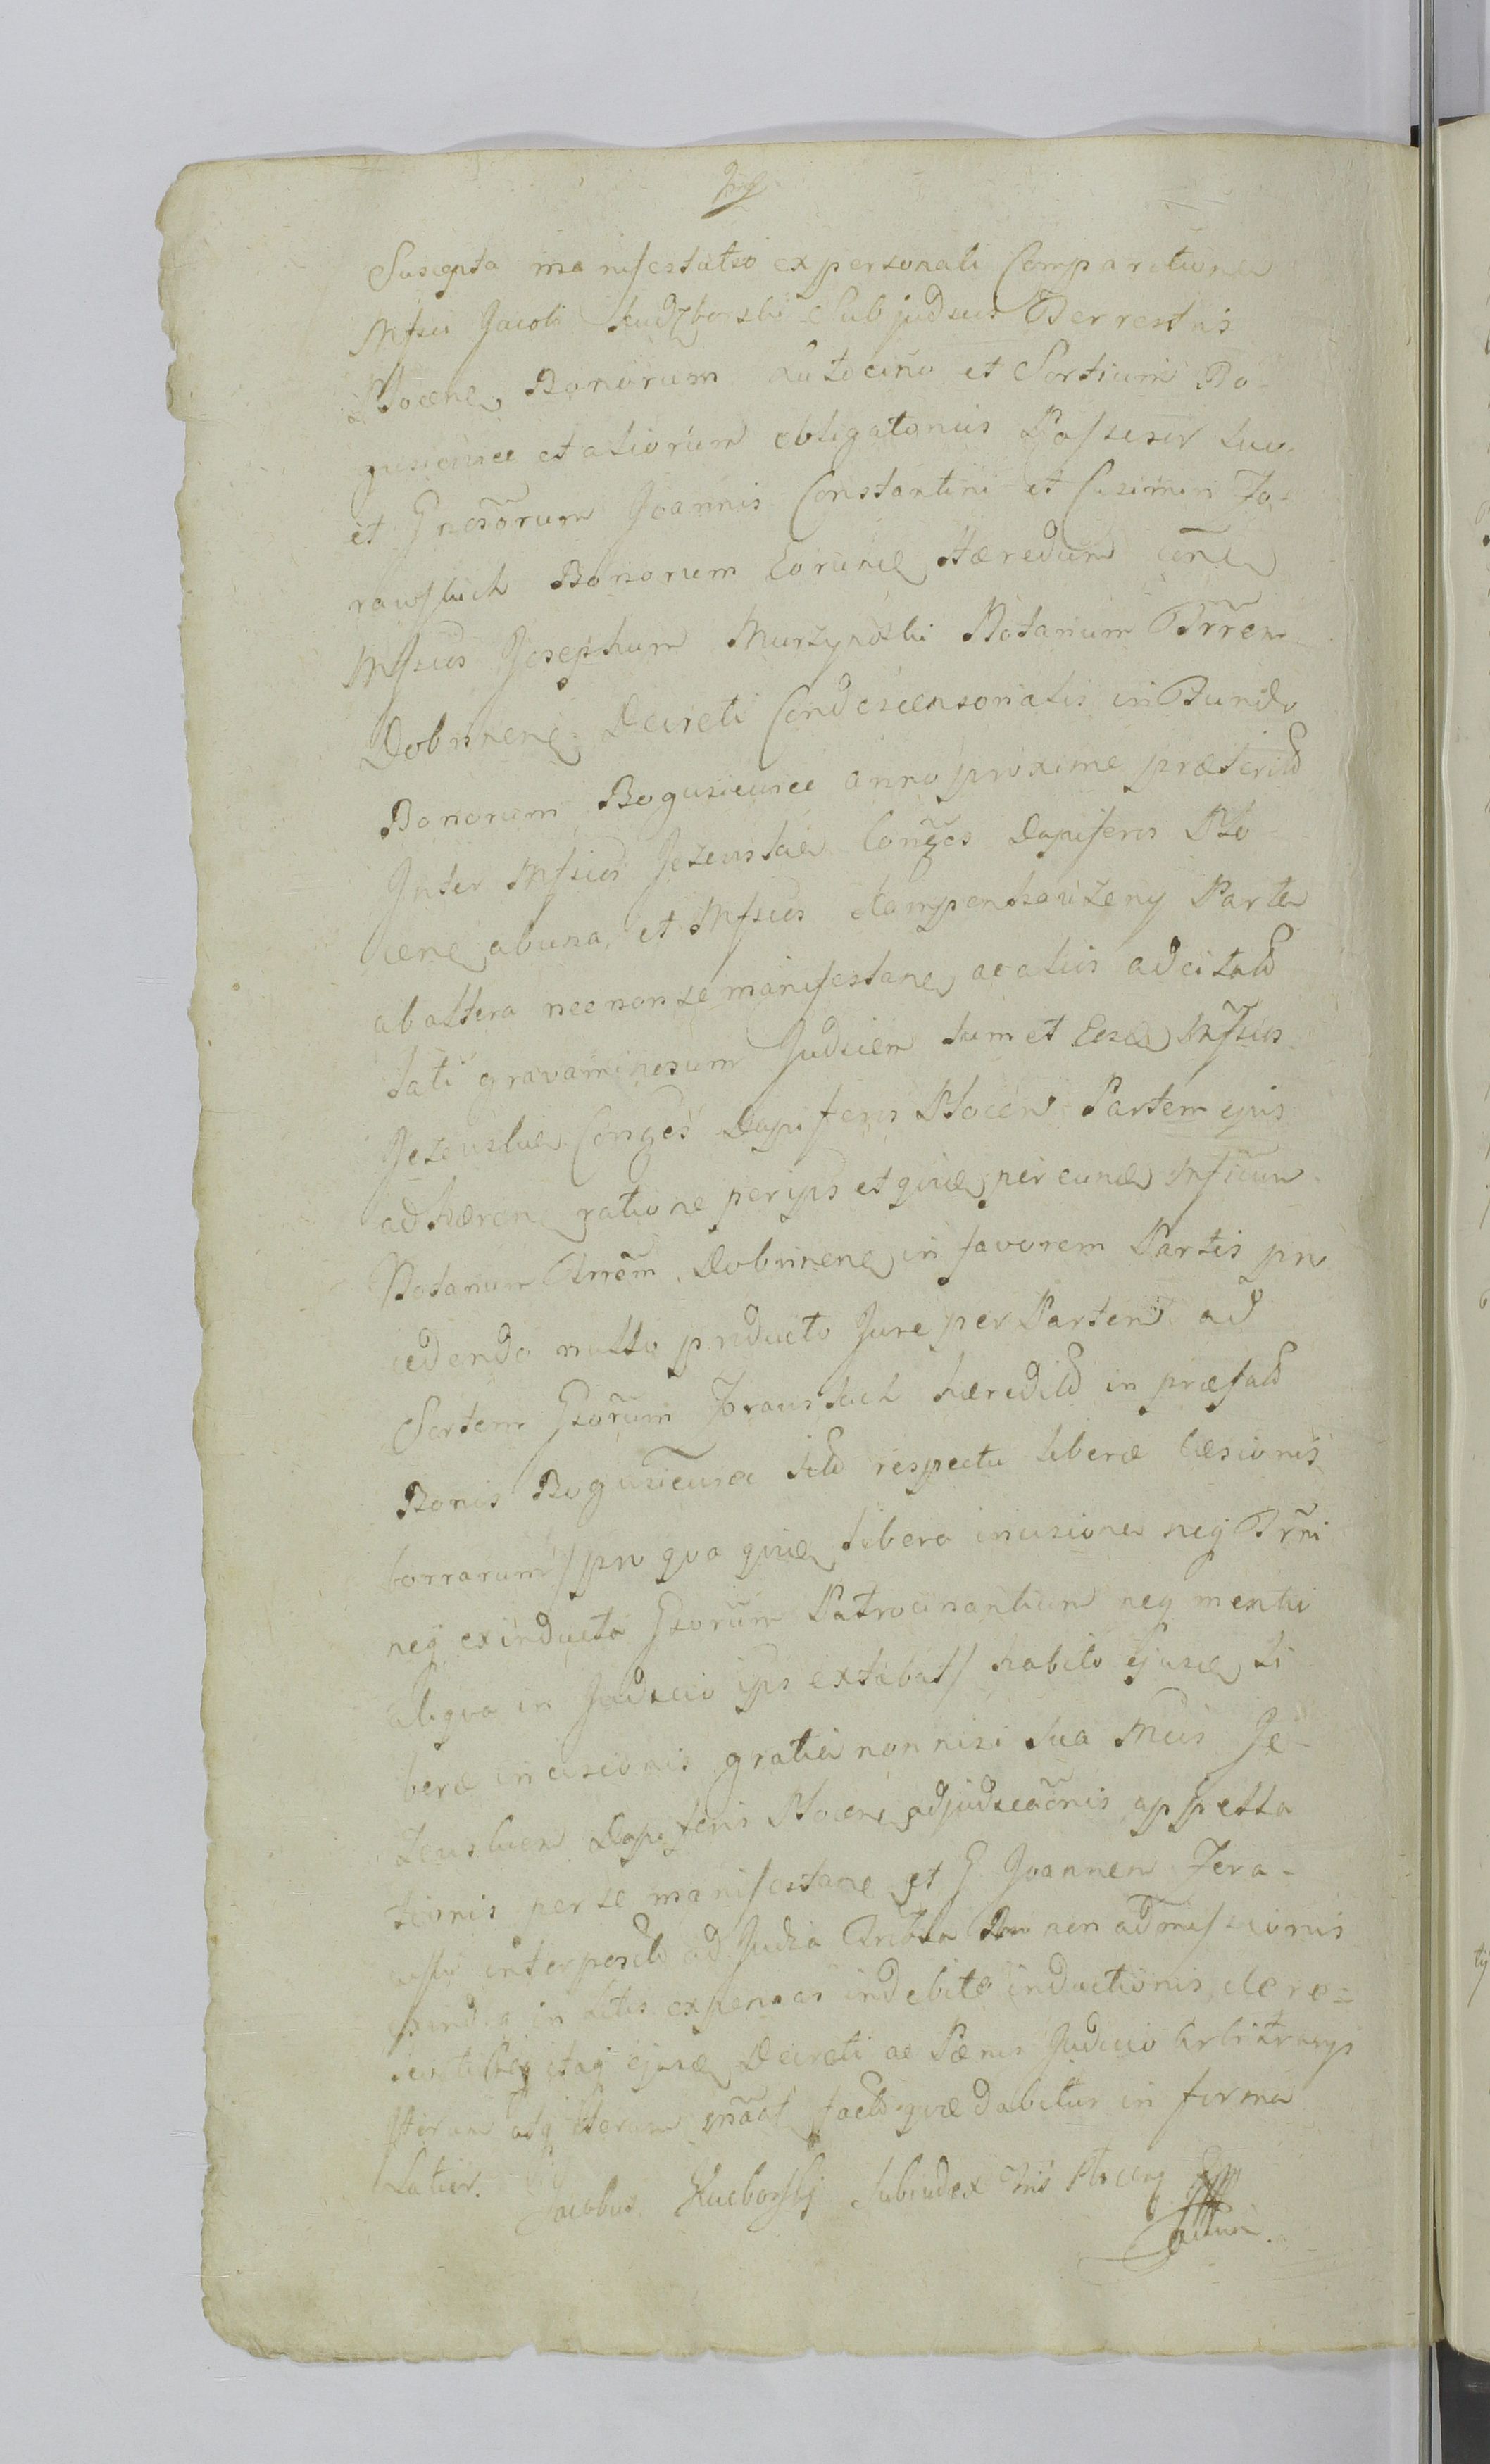 Suscepta manifestatio ex personali Comparitione
Mfsci Jacobi Kudzborski Subjudicis Terrestris
Plocen, Bonorum Lutocino et Sortium Bo-
gusievice et aliorum obligatorius Possessor suo
et Gnosorum Joannis Constantini et Casimiri Jo-
rawskich Bonorum Eorund Hæredum cone
Mfscus Josephum Murzynoski Notarium Trren
Dobrinen, Decreti Condescensorialis in Fundo
Bonorum Bogusievice anno proxime præterito
Inter Mfscos Jezewskie Conges Dapiferos Plo-
cen, ab una, et Mfscos Kampenhauzeny Parte
ab altera necnon se manifestan, ac aliis adcitatis
lati gravaminosum Judicem tum et Eosd Mfscos
Jezewskie Conges Dapiferos Plocen Partem ejus
adhæren, ratione per ips et quid, per eund Mfscum
Notarium Trrem Dobrinen, in favorem Partis pro
cedendo nullo prducto Jure per Partem ad
Sortem Gsorum Jorawskich hæredit in præfat
Bonis Bogusievice sit respectu liberæ Cæsionis
borrarum / pro qua quid, libera incisione neq Trni
neq exinducta Gsorum Patrocinantium neq mentio
aliqua in Judicio ips extabat / habito Ejusd, li
beræ incisionis gratia non nisi sua Mcis Je-
zewskien Dapiferis Plocen, adjudicaonis appella
tionis per se manifestane et G. Joannem Jora-
wski interposito ad Judia Tribla Rni non admissionis
proind, q in Litis expensas indebite inductionis de re-
itaq ejusd, Decreti ac Pænis Judicio Arbitrarys
Iterum atq Iterum mãt facto quæ dabitur in forma
Latior. Jacobus Kucborski Subiudex Tris Plocen mp